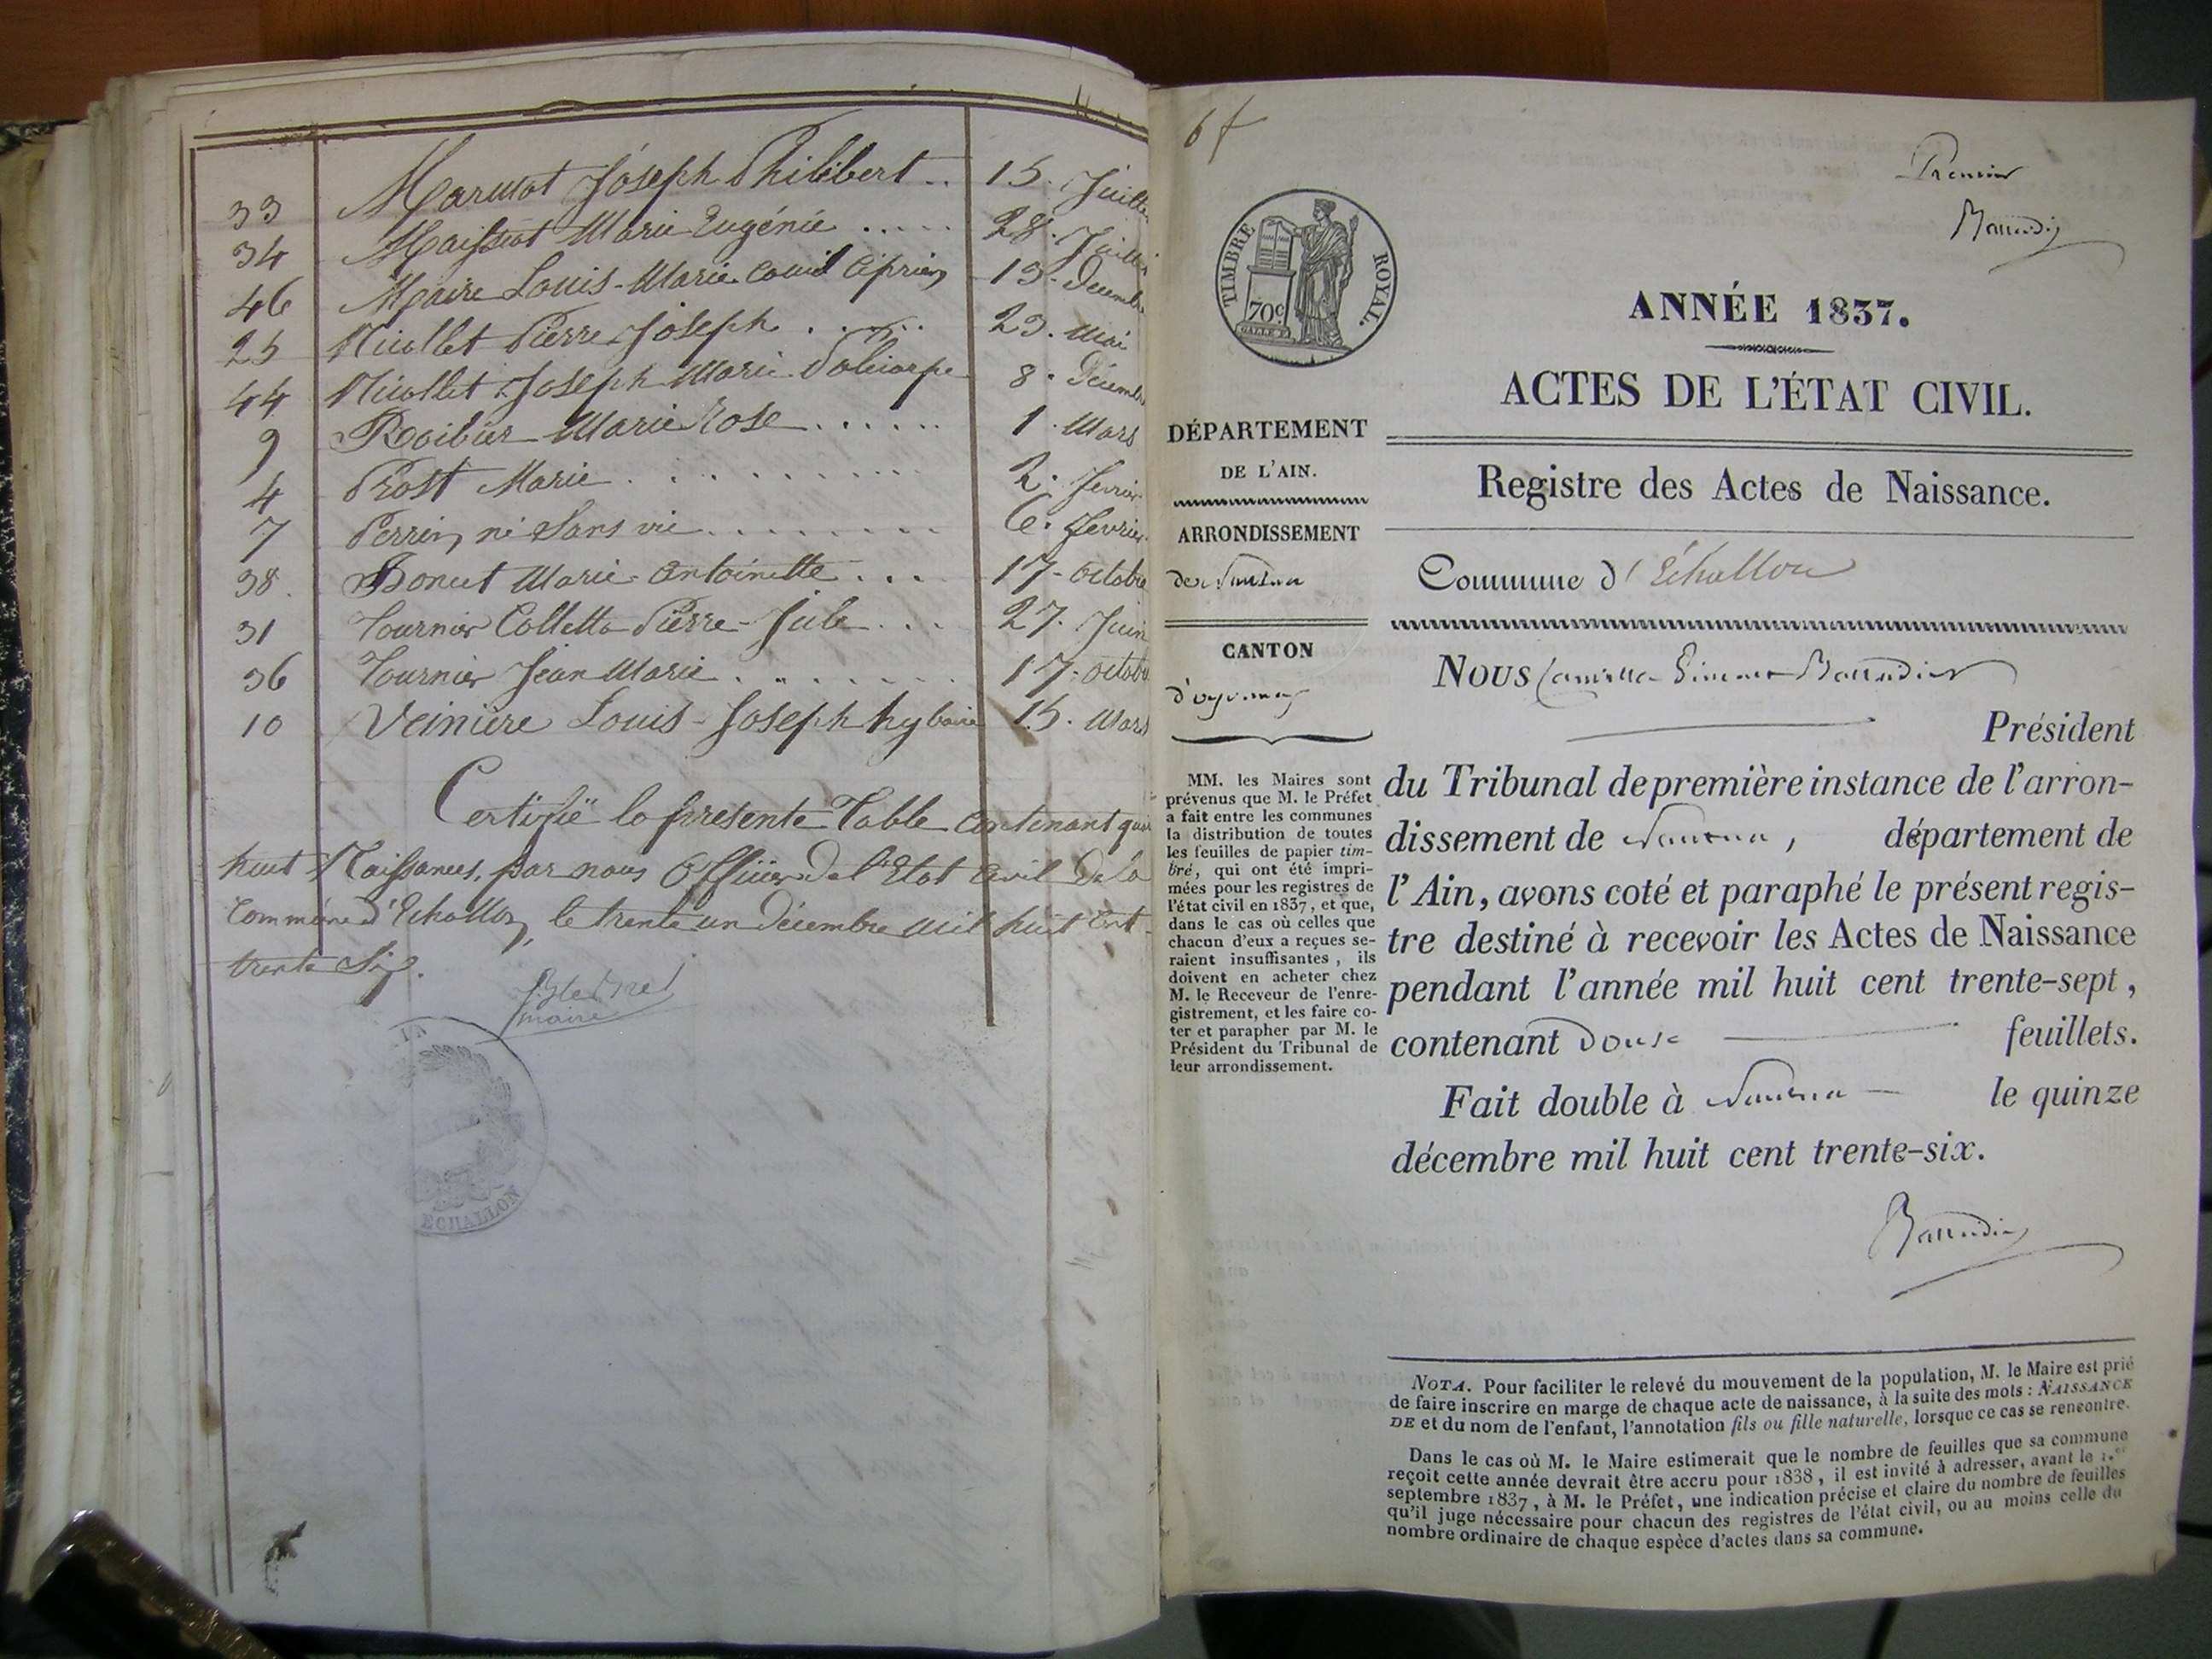 33 Marmot Joseph Philibert .. 15. Juillet
34 Maissiat Marie Eugénie ..... 28. Juillet
46 Maire Louis-Marie Ciprien 13. Decemb
25 Nicollet Pierre Joseph ..... 23. Mai
44 Nicollet Joseph Marie Policarpe 8. Décemb
9 Roibier Marie Rose ...... 1. Mars
4 Rost Marie ........ 2. fevrier
7 Perrin, né Sans vie ........ 6. fevrier
38. Bonet Marie Antoinette ... 17. Octobre
31 Tournier Colletta Pierre-Jule ... 27. Juin
36 Tournier Jean Marie ....... 17. Octob
10 Veiniere Louis-Joseph 15. Mars
Certifié la presente Table Contenant qua
huit Naissances, par nous Officier De l'Etat Civil De la
Commune d'Echallon, le trente un décembre mil huit Cent
trente Six.
maire
ECHALLON
6 f
Premier
Baudin
TIMBRE ROYAL.
70c
ANNÉE 1837.
ACTES DE L'ÉTAT CIVIL.
DÉPARTEMENT
DE L'AIN.
ARRONDISSEMENT
de Nantua
CANTON
d'oyonnax
MM. les Maires sont
prévenus que M. le Préfet
a fait entre les communes
la distribution de toutes
les feuilles de papier tim-
bré, qui ont été impri-
mées pour les registres de
l'état civil en 1837, et que,
dans le cas où celles que
chacun d'eux a reçues se-
raient insuffisantes, ils
doivent en acheter chez
M. le Receveur de l'enre-
gistrement, et les faire co-
ter et parapher par M. le
Président du Tribunal de
leur arrondissement.
Registre des Actes de Naissance.
Commune d'Echallon
NOUS Camille
Président
du Tribunal de première instance de l'arron-
dissement de Nantua, département de
l'Ain, avons coté et paraphé le présent regis-
tre destiné à recevoir les Actes de Naissance
pendant l'année mil huit cent trente-sept,
contenant Douse feuillets.
Fait double à Nantua le quinze
décembre mil huit cent trente-six.
NOTA. Pour faciliter le relevé du mouvement de la population, M. le Maire est prié
de faire inscrire en marge de chaque acte de naissance, à la suite des mots : NAISSANCE
DE et du nom de l'enfant, l'annotation fils ou fille naturelle, lorsque ce cas se rencontre.
Dans le cas où M. le Maire estimerait que le nombre de feuilles que sa commune
reçoit cette année devrait être accru pour 1838, il est invité à adresser, avant le 1.er
septembre 1837, à M. le Préfet, une indication précise et claire du nombre de feuilles
qu'il juge nécessaire pour chacun des registres de l'état civil, ou au moins celle du
nombre ordinaire de chaque espèce d'actes dans sa commune.